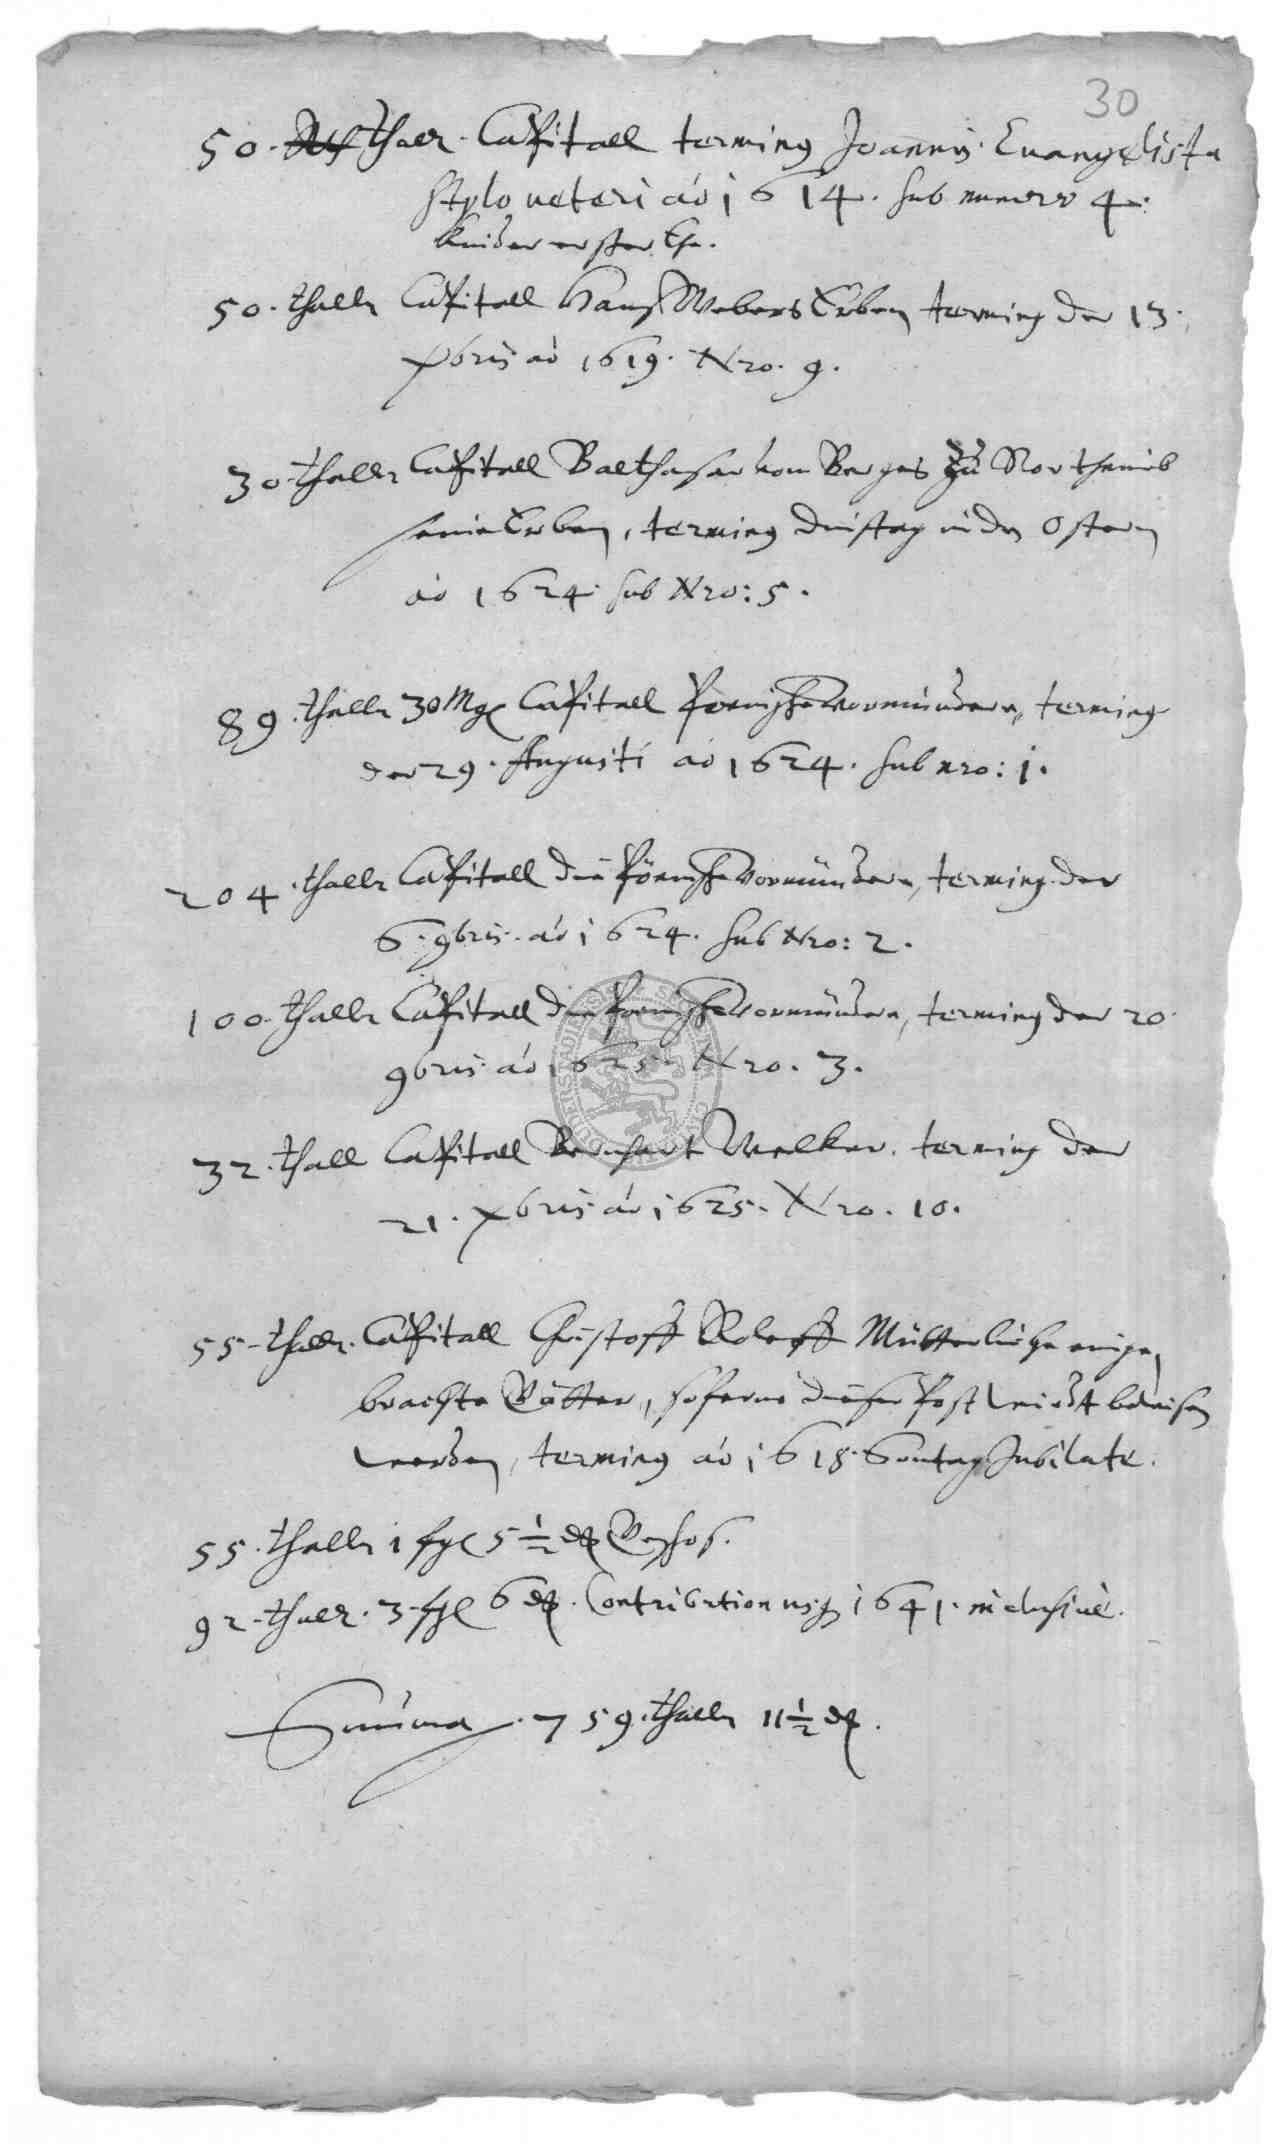 30
50. thaler. Capitall terminus Joannis Evangelista
stylo veteri aõ 1614. sub numero 4.
50. thaller Capitall Hanß Webers Erben terminus der 13.
Xbris aõ 1619. Nro. 9.
30 thaller Capitall Balthasar vom Berges zu
seine Erben, terminus Dinstag in den Ostern
aõ 1624. sub Nro: 5.
89. thaller 30 Mg Capitall vormündere, terminus
der 29. Augusti aõ 1624. sub nro: 1.
204. thaller Capitall die vormündere, terminus der
6. 9bris. aõ 1624. sub Nro: 2.
100. thaller Capitall die vormündere, terminus der 20
9bris. aõ 1625. Nro. 3.
32. thall Capitall Bernhart Welker. terminus der
21. Xbris aõ 1625. Nro. 10.
55. thaler. Capitall Christoff Roloff Mütterliche einge
brachte Gütter, soferne dieser Post nicht bewisen
werden, terminus aõ 1618. Sontag Jubilate.
55. thaller 1 ßgl 5 1/2 d Geschos.
92. thaler. 3. ßgl 6 d. Contribution usq 1641. inclusive.
Summa. 759. thaller 11 1/2 d.